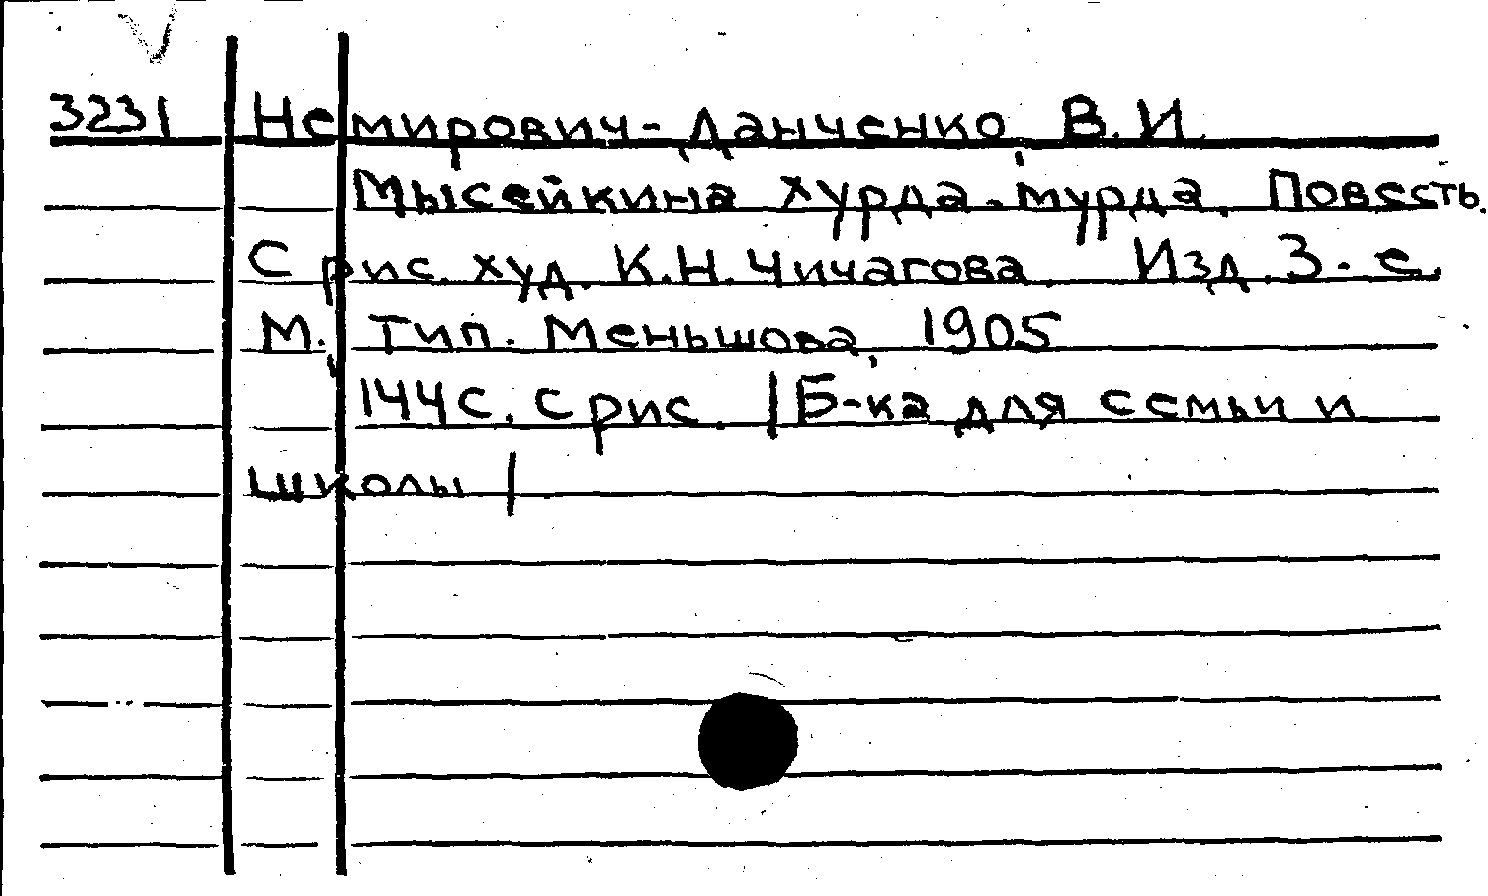 3231 Немирович-Данченко, В.И.
Мысейкина хурда-мурда. Повесть.
С рис. худ. К.Н. Чичагова. Изд. 3-е.
М., Тип. Меньшова, 1905
144с. с рис. |Б-ка для семьи и
школы|